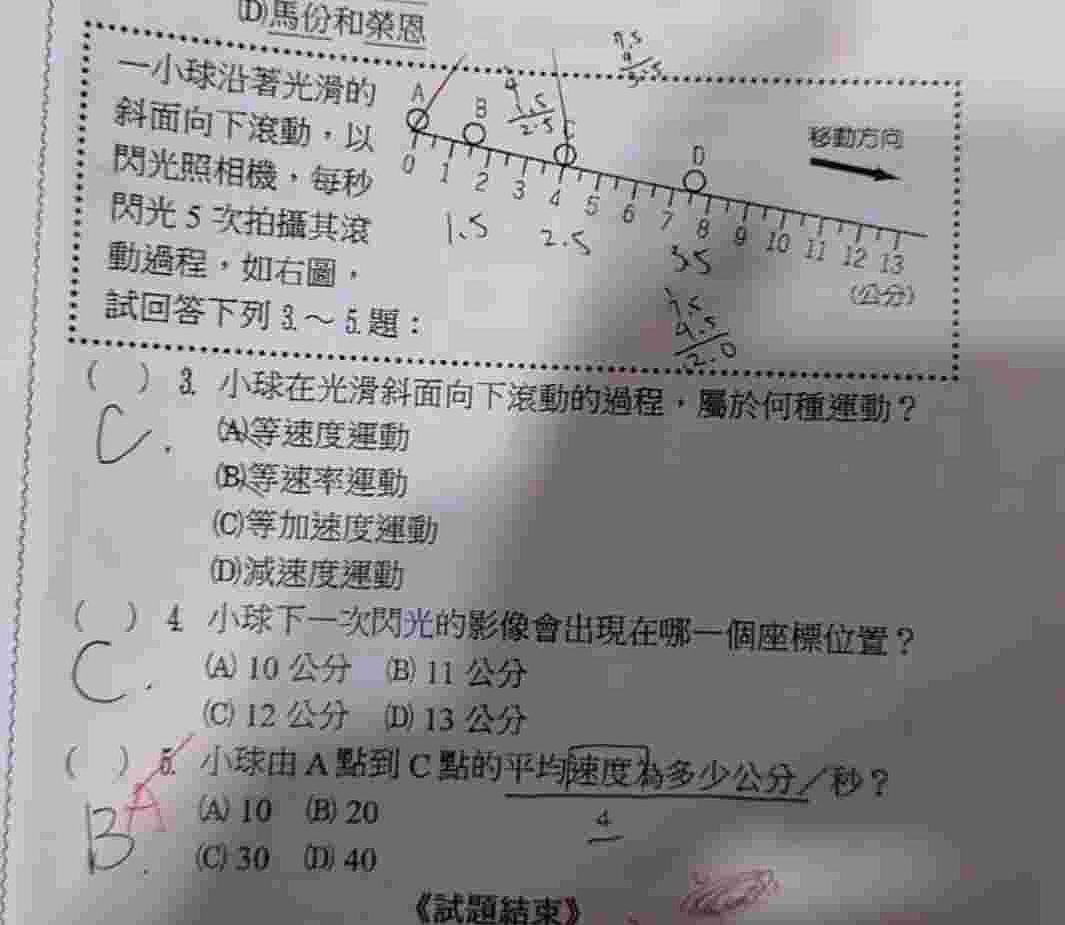 (D)馬份和榮恩
一小球沿著光滑的
斜面向下滾動，以
閃光照相機，每秒
閃光 5 次拍攝其滾
動過程，如右圖，
試回答下列 3.～ 5. 題：
A B C D
移動方向
0 1 2 3 4 5 6 7 8 9 10 11 12 13
(公分)
1.5 2.5 3.5
7.5
4
3.5
4
1.5
2.5
7.5
4.5
12.0
( ) 3. 小球在光滑斜面向下滾動的過程，屬於何種運動？
C.
(A)等速度運動
(B)等速率運動
(C)等加速度運動
(D)減速度運動
( ) 4. 小球下一次閃光的影像會出現在哪一個座標位置？
C.
(A) 10 公分 (B) 11 公分
(C) 12 公分 (D) 13 公分
( ) 5. 小球由 A 點到 C 點的平均速度為多少公分／秒？
B. A
(A) 10 (B) 20
4
(C) 30 (D) 40
《試題結束》